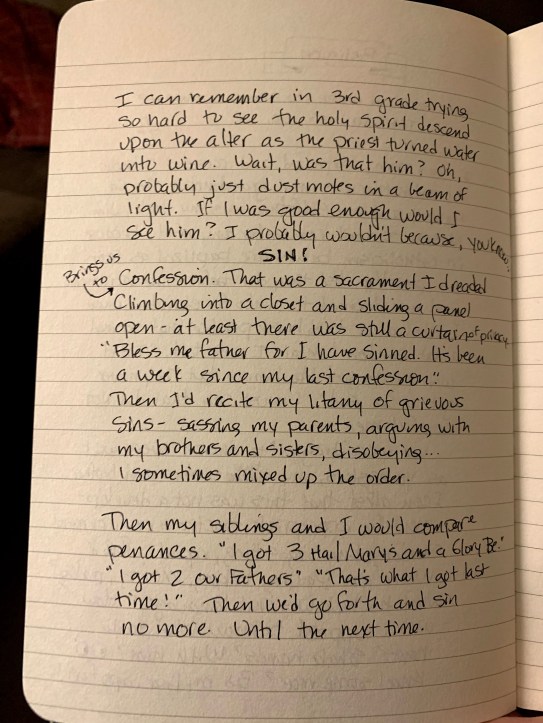 I can remember in 3rd grade trying
so hard to see the holy spirit descend
upon the alter as the priest turned water
into wine. Wait, was that him? Oh,
probably just dust motes in a beam of
light. If I was good enough would I
see him? I probably wouldn't because, you know:
SIN!
Brings us
to
Confession. That was a sacrament I dreaded
Climbing into a closet and sliding a panel
open - at least there was still a curtain of privacy
"Bless me father for I have sinned. It's been
a week since my last confession."
Then I'd recite my litany of grievous
sins - sassing my parents, arguing with
my brothers and sisters, disobeying...
I sometimes mixed up the order.
Then my siblings and I would compare
penances. "I got 3 Hail Marys and a Glory Be."
"I got 2 Our Fathers" "That's what I got last
time!" Then we'd go forth and sin
no more. Until the next time.